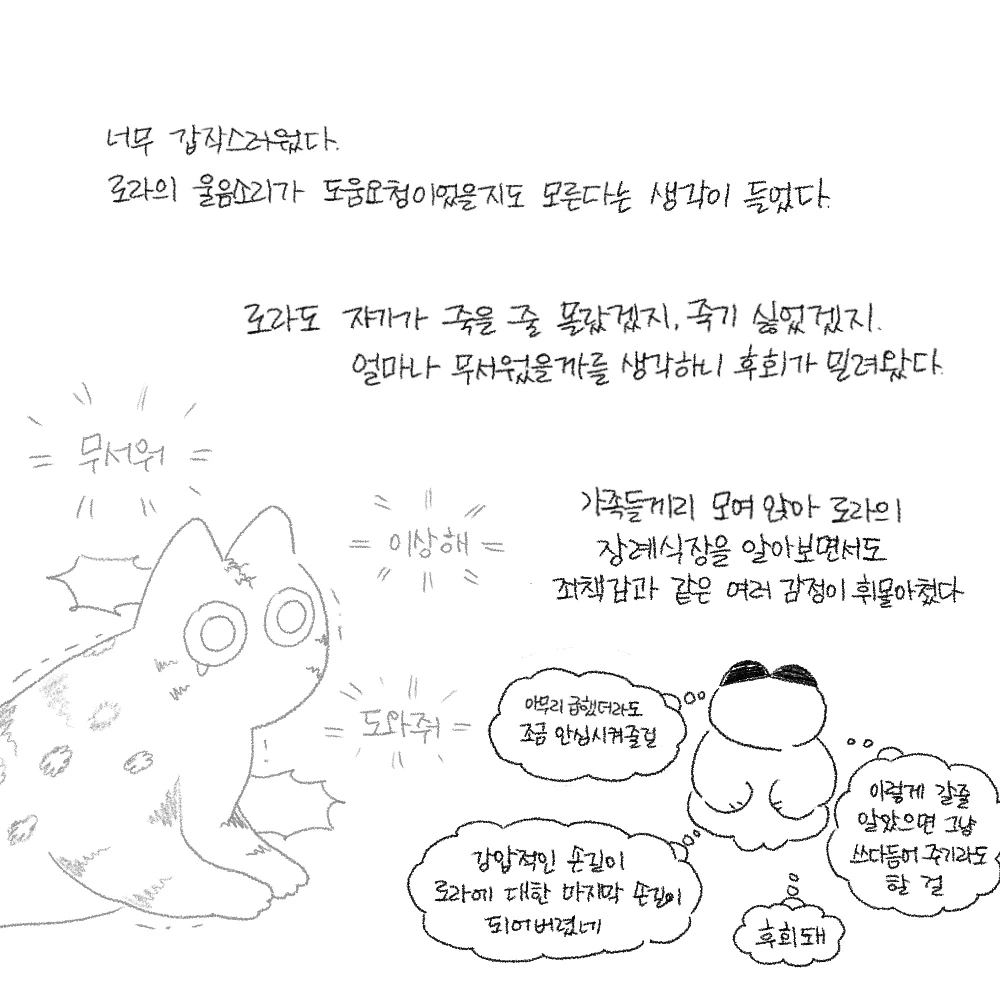 너무 갑작스러웠다.
로라의 울음소리가 도움요청이었을지도 모른다는 생각이 들었다.
로라도 쟈기가 죽을 줄 몰랐겠지, 죽기 싫었겠지.
얼마나 무서웠을까를 생각하니 후회가 밀려왔다.
무서워
이상해
도와줘
가족들끼리 모여 앉아 로라의
장례식장을 알아보면서도
죄책감과 같은 여러 감정이 휘몰아쳤다
아무리 급했더라도
조금 안심시켜줄걸
이렇게 갈줄
알았으면 그냥
쓰다듬어 주기라도
할 걸
강압적인 손길이
로라에 대한 마지막 손길이
되어버렸네
후회돼